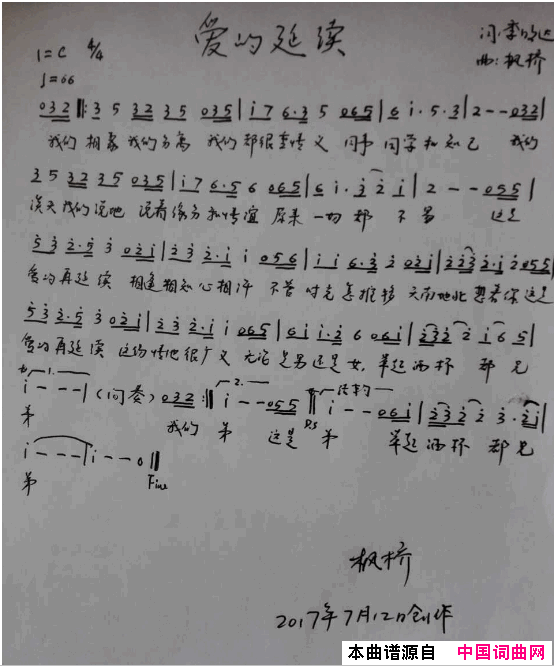 爱的延续
1=C 4/4 词:李
♩=66 曲:枫桥
032 ‖: 3 5 32 35 035 | i 7 6·3 5 065 | 6 i · 5 · 3 | 2 - - 032 |
我们 相聚 我们分离 我们都很重情义 同事 同学和知己 我们
3 5 32 35 035 | i 7 6·5 6 065 | 6 i · 3̇ 2̇ i | 2 - - 055 |
谈天我们说地 说着缘分和情谊 原来一切都不易 这是
5̇ 3̇ 2̇·5̇ 3̇ 02̇i | 2̇ 3̇ 2̇·i i 056 | i i 6·3̇ 2̇ 02̇i | 2̇2̇3̇ 2̇·i 2̇055 |
爱的再延续 相逢相知心相许 不管时光怎推移 天南地北想着你这是
5̇ 3̇ 2̇·5̇ 3̇ 02̇i | 2̇ 3̇ 2̇·i i 065 | 6i i·2̇ 6 06i | 2̇3̇2̇ 2̇ i 6 5 |
爱的再延续 这份情也很广义 无论是男还是女 举起酒杯都兄
1. i - - - | (间奏) 032 :‖ 2. i - - 055 ‖ 结束句 i - - 06i | 2̇2̇3̇ 2̇ 2̇ 3̇·2̇i |
弟 我们 弟 这是 D.S 弟 举起酒杯 都兄
i - - - | i - - 0 ‖
弟 Fine
枫桥
2017年7月12日创作
本曲谱源自 中国词曲网